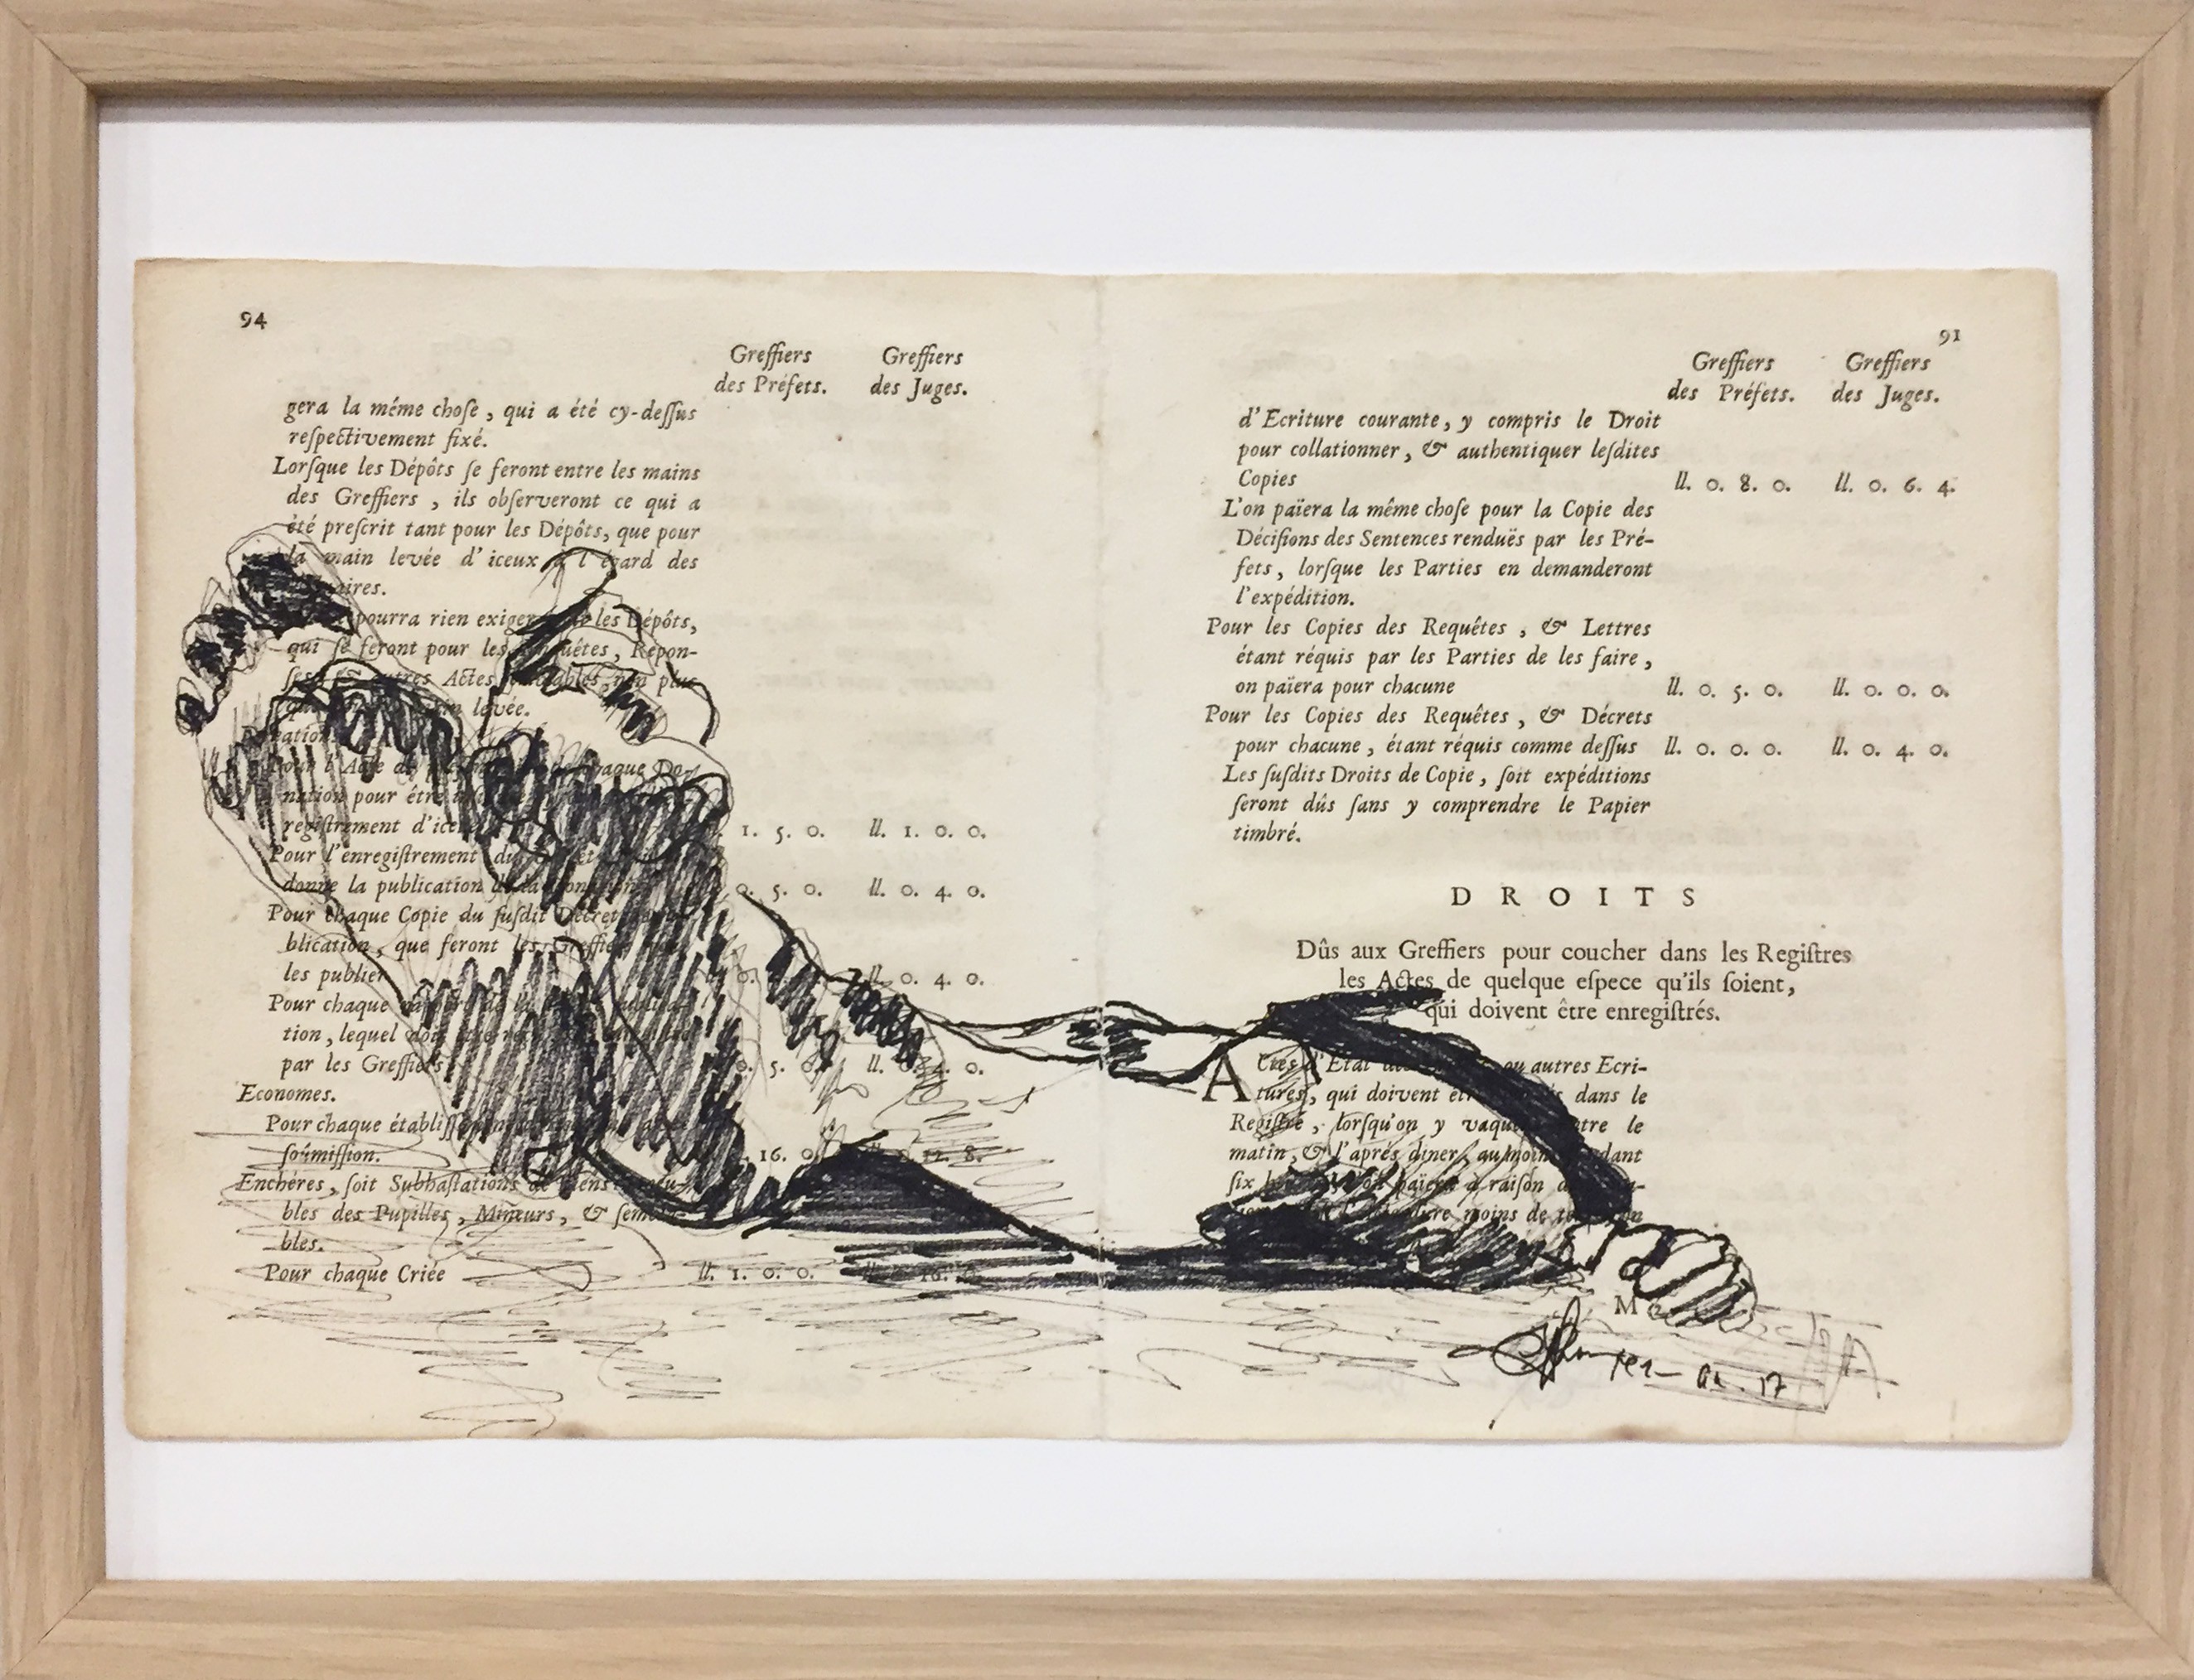 94
Greffiers Greffiers
des Préfets. des Juges.
gera la même choſe , qui a été cy-deſſus
reſpectivement fixé.
Lorſque les Dépôts ſe feront entre les mains
des Greffiers , ils obſerveront ce qui a
été preſcrit tant pour les Dépôts, que pour
la main levée d'iceux à l'égard des
pourra rien exiger les Dépôts,
qui ſe feront pour les Répon-
Actes non plus
levée.
Pour l'Acte de chaque Do-
nation pour être
regiſtrement 1. 5. 0. ll. 1. 0. 0.
Pour l'enregiſtrement du
donne la publication de la 0. 5. 0. ll. 0. 4. 0.
Pour chaque Copie du ſuſdit Décret
blication , que feront les Greffiers
les publier 0. ll. 0. 4. 0.
Pour chaque
tion , lequel
par les Greffiers 0. 5. 0. ll. 0. 4. 0.
Economes.
Pour chaque
ſoûmiſſion. 16. 0.
Enchéres , ſoit Subhaſtations de
bles des Pupilles , Mineurs , &
bles.
Pour chaque Criée ll. 1. 0. 0.
91
Greffiers Greffiers
des Préfets. des Juges.
d'Ecriture courante, y compris le Droit
pour collationner , & authentiquer leſdites
Copies ll. 0. 8. 0. ll. 0. 6. 4.
L'on païera la même choſe pour la Copie des
Déciſions des Sentences renduës par les Pré-
fets , lorſque les Parties en demanderont
l'expédition.
Pour les Copies des Requêtes , & Lettres
étant réquis par les Parties de les faire ,
on païera pour chacune ll. 0. 5. 0. ll. 0. 0. 0.
Pour les Copies des Requêtes , & Décrets
pour chacune , étant réquis comme deſſus ll. 0. 0. 0. ll. 0. 4. 0.
Les ſuſdits Droits de Copie , ſoit expéditions
ſeront dûs ſans y comprendre le Papier
timbré.
DROITS
Dûs aux Greffiers pour coucher dans les Regiſtres
les Actes de quelque eſpece qu'ils ſoient,
qui doivent être enregiſtrés.
Actes d'Etat ou autres Ecri-
tures , qui doivent dans le
Regiſtre , lorſqu'on y entre le
matin , & l'aprés diner , au moins
ſix païera à raiſon
moins de
17